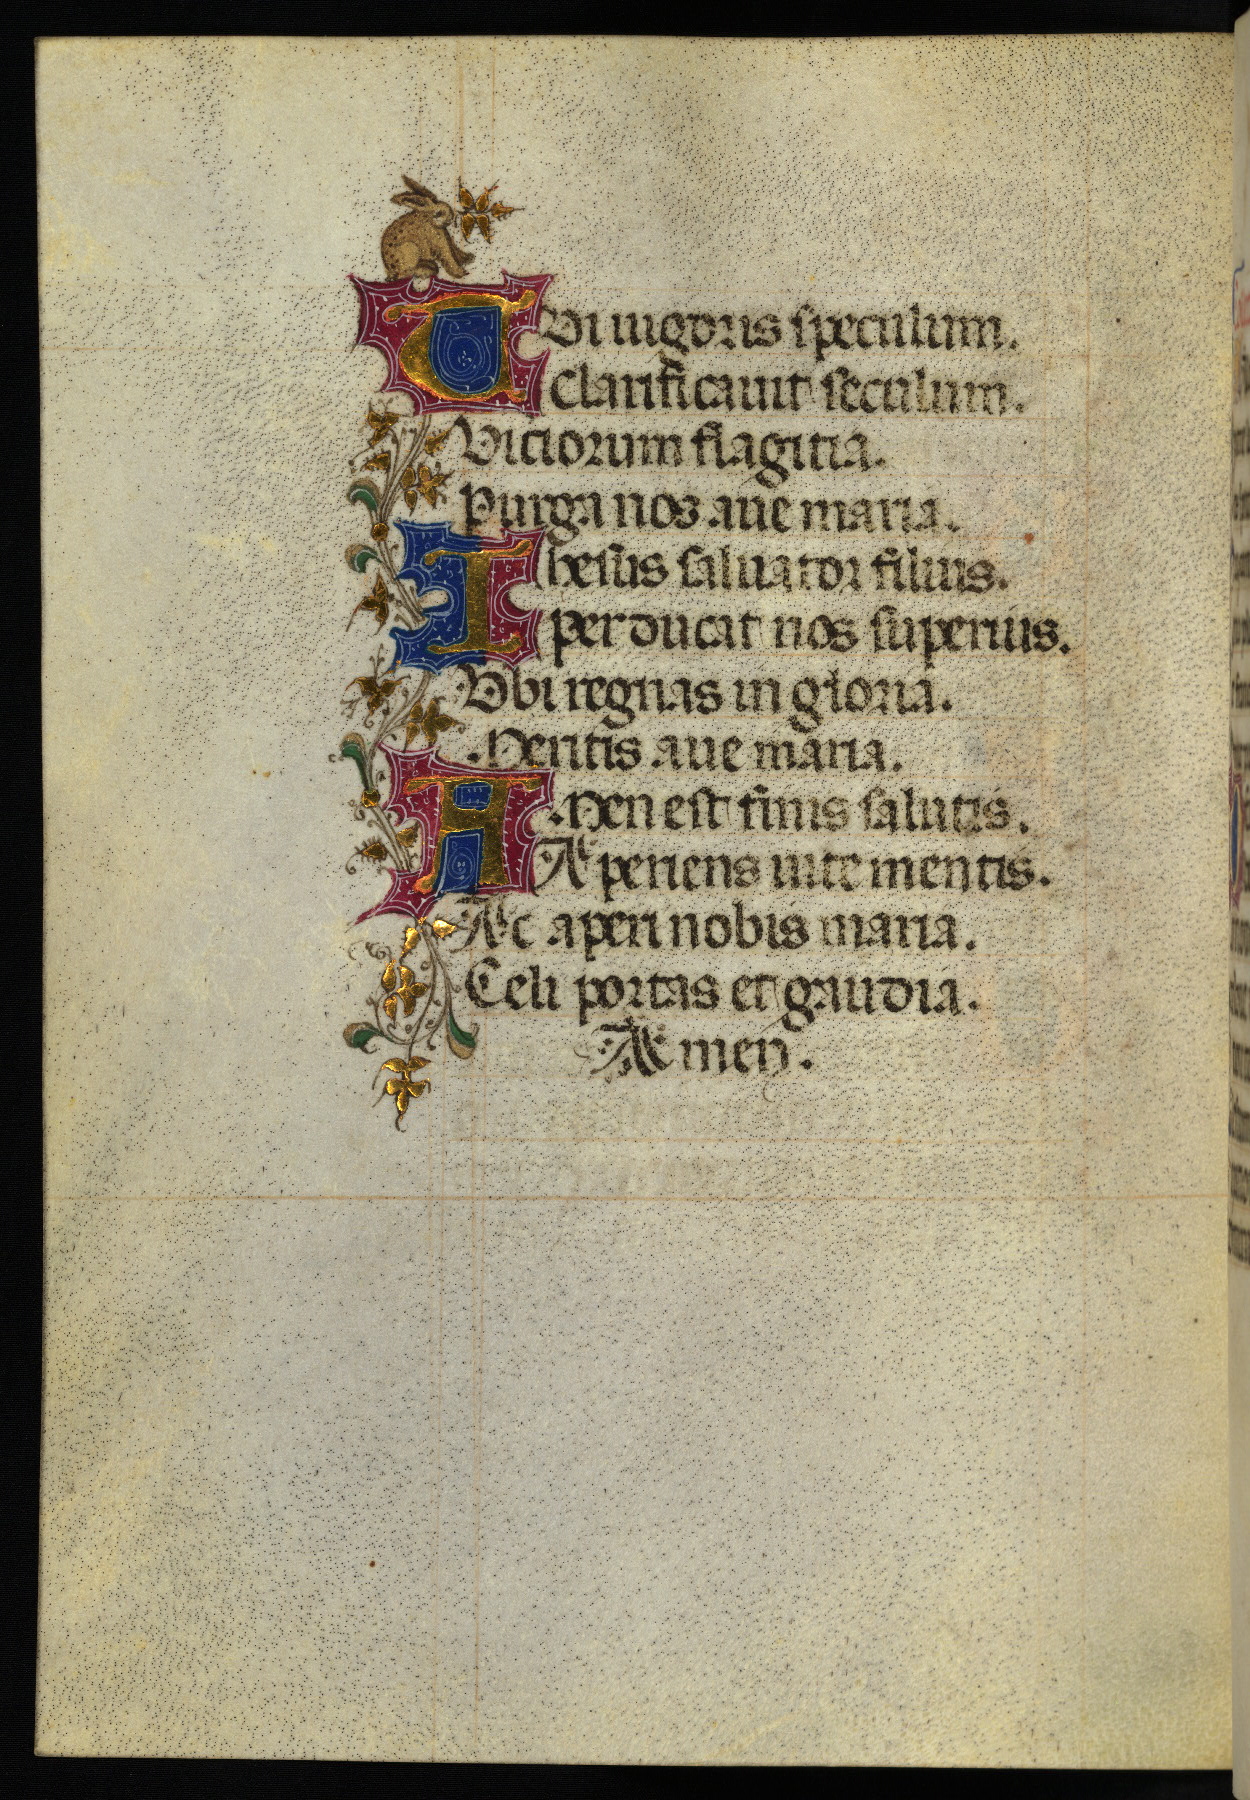 UDi uigoris speculum.
Clarificauit seculum.
Viciorum flagitia.
Purga nos aue maria.
Ihesus saluator filius.
perducat nos superius.
Vbi regnas in gloria.
.Heritis aue maria.
A.Hen est finis salutis.
Aperiens uite mentis.
Ac aperi nobis maria.
Celi portas et gaudia.
Amen.